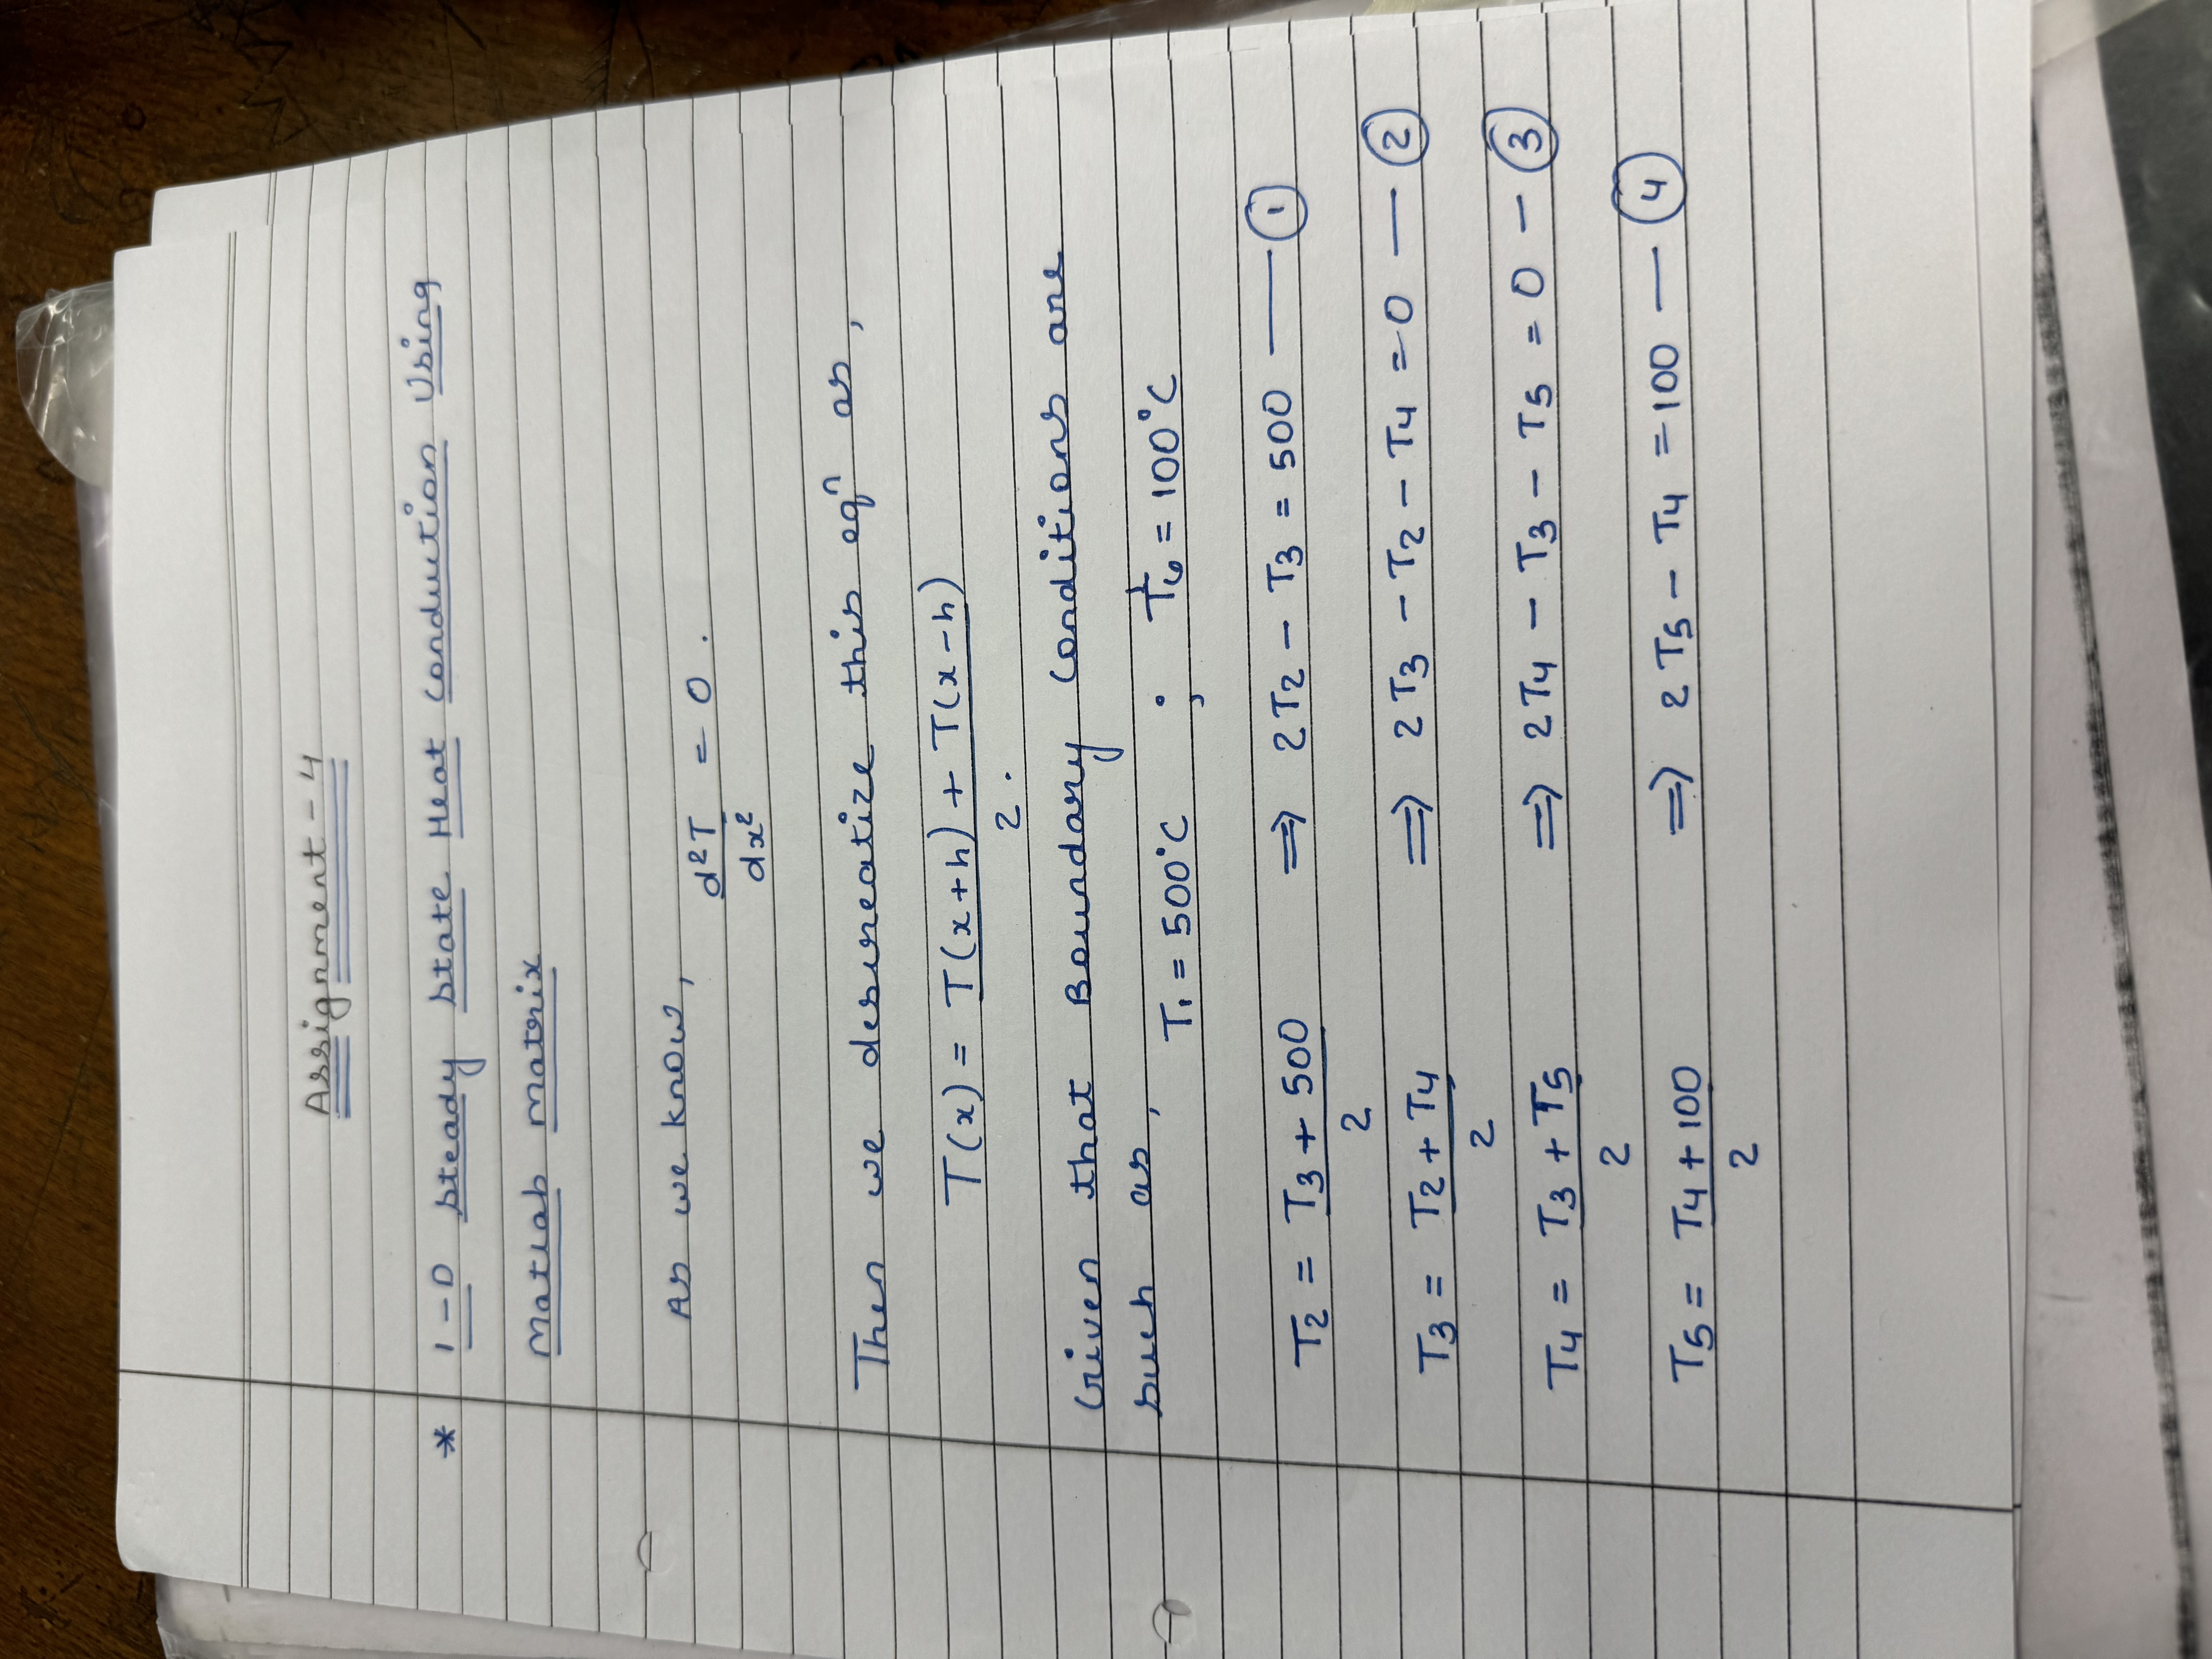 Assignment - 4
* 1-D Steady State Heat Conduction Using
Matlab Matrix
As we know,
d²T/dx² = 0 .
Then we descreatize this eqⁿ as,
T(x) = T(x+h) + T(x-h) / 2 .
Given that Boundary Conditions are
such as,
T₁ = 500°C ; T₆ = 100°C
T₂ = T₃ + 500 / 2 ⇒ 2T₂ - T₃ = 500 — ①
T₃ = T₂ + T₄ / 2 ⇒ 2T₃ - T₂ - T₄ = 0 — ②
T₄ = T₃ + T₅ / 2 ⇒ 2T₄ - T₃ - T₅ = 0 — ③
T₅ = T₄ + 100 / 2 ⇒ 2T₅ - T₄ = 100 — ④